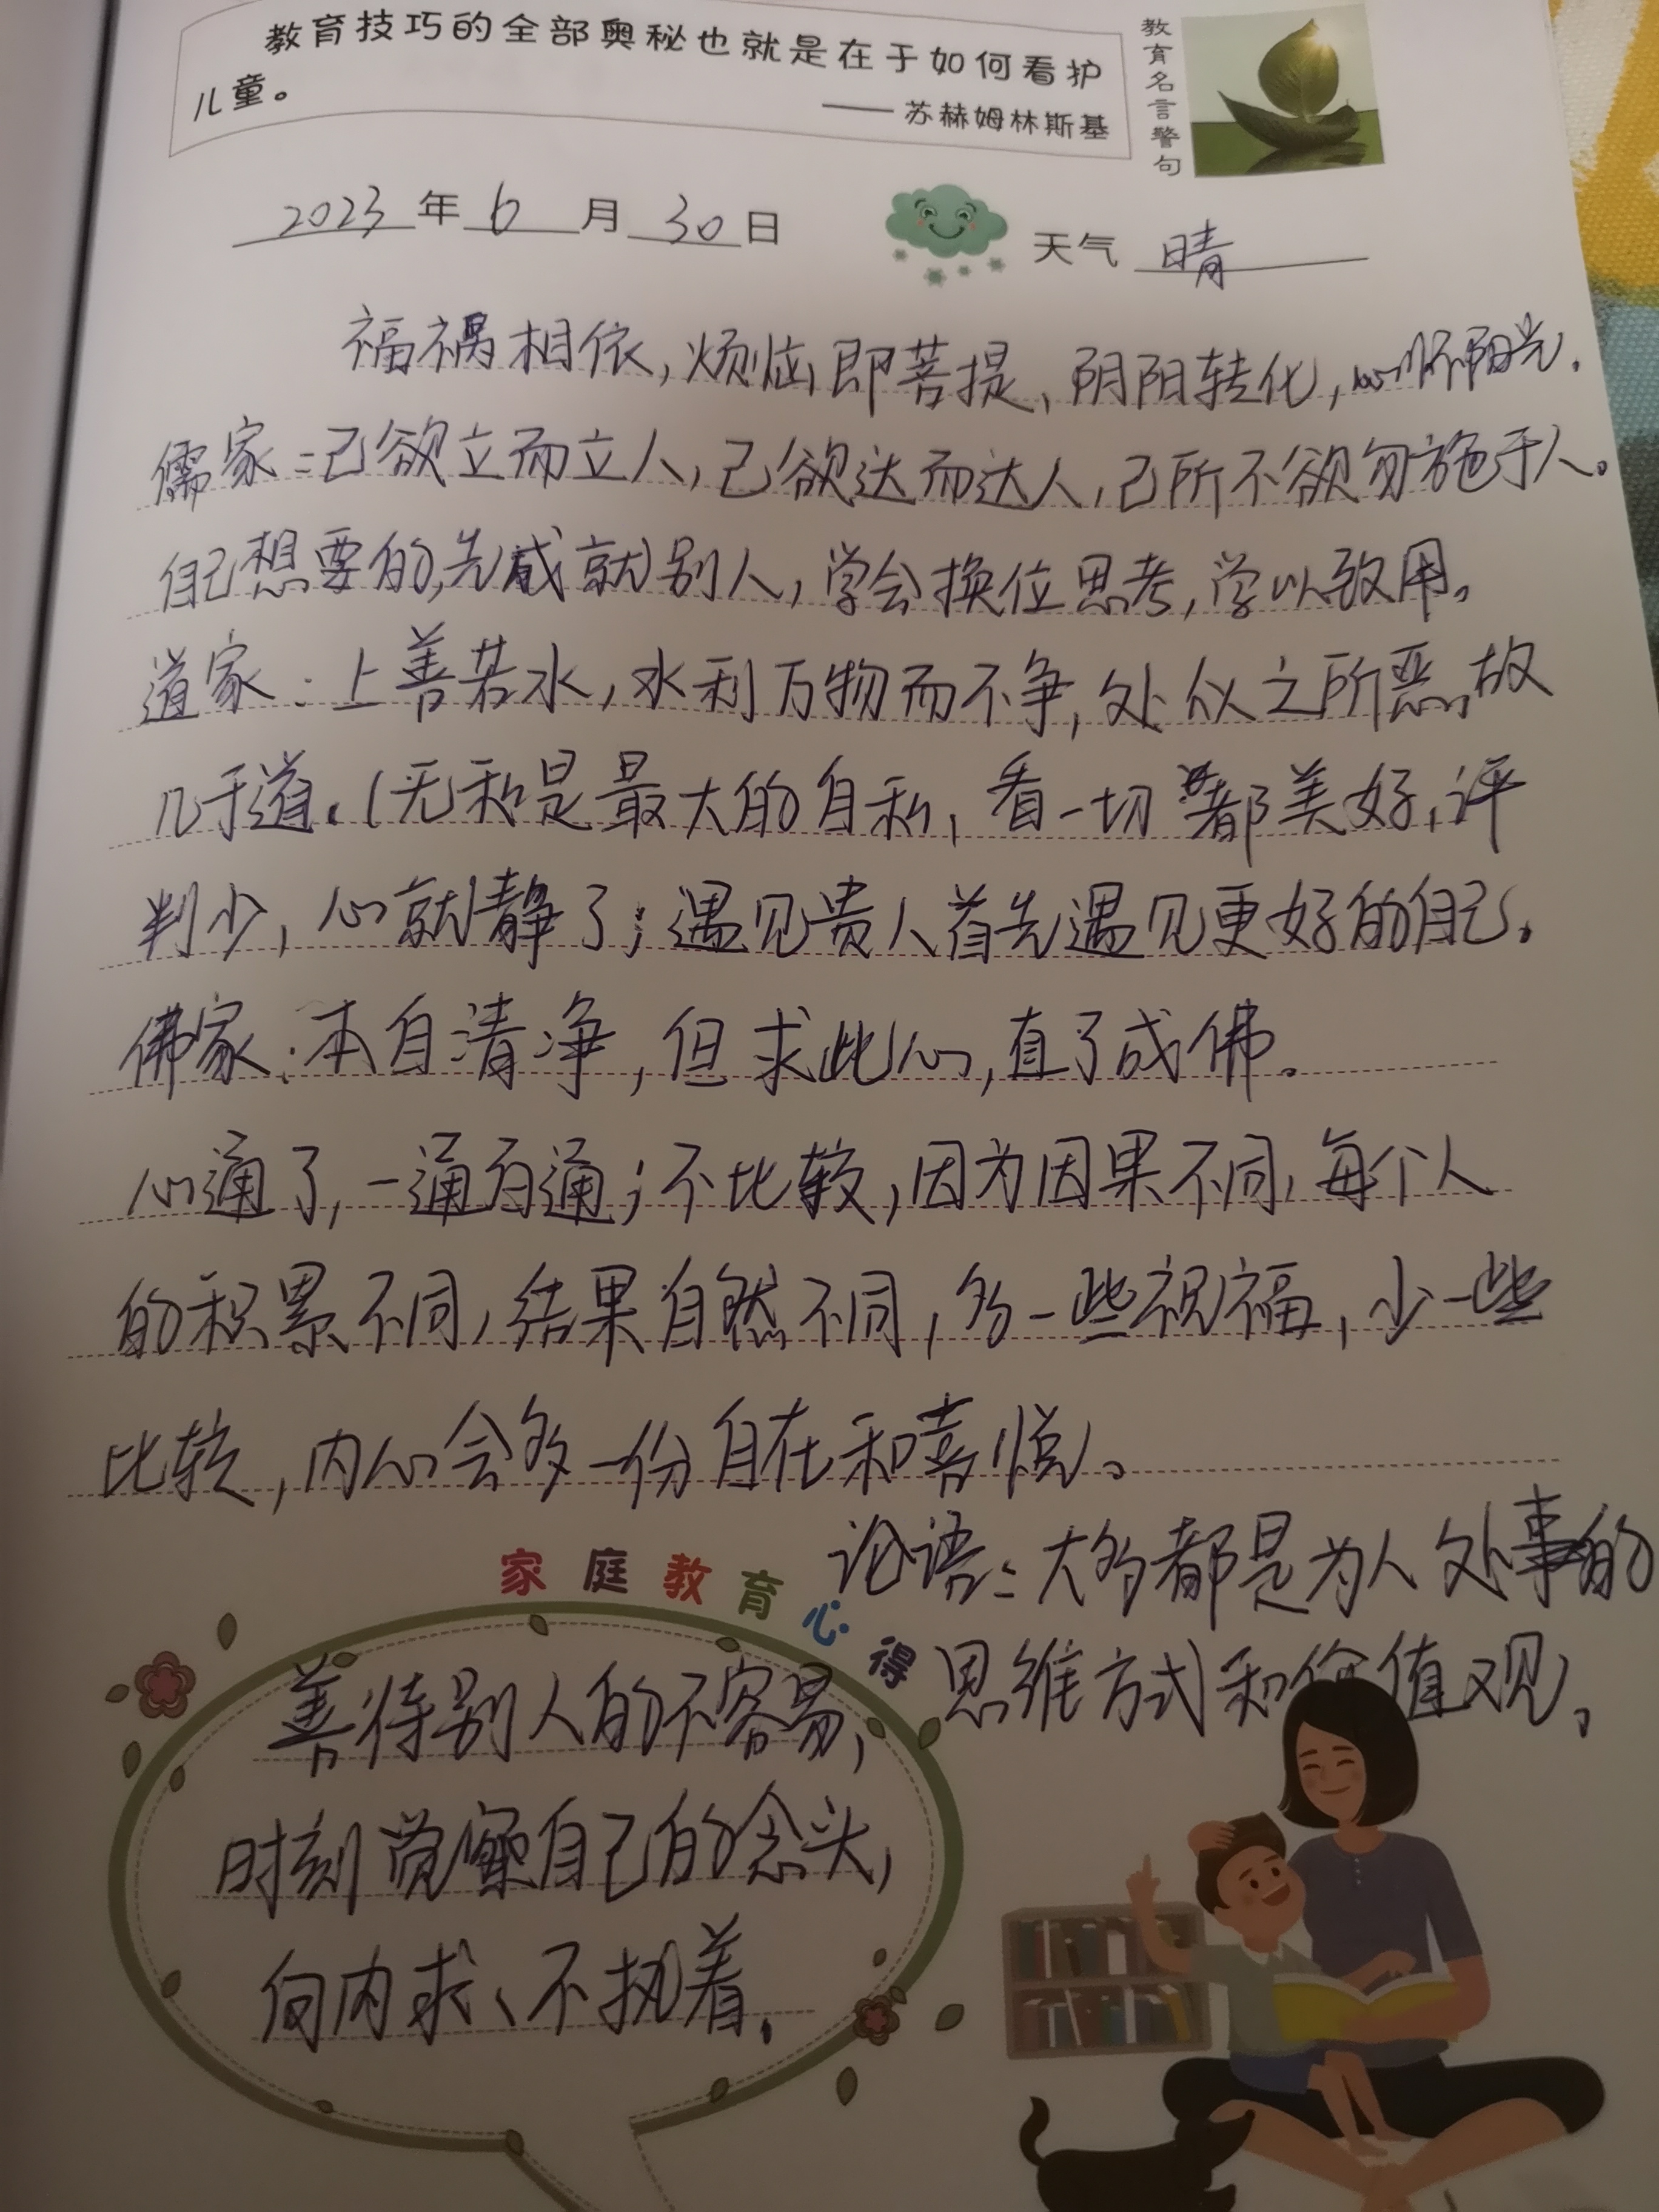 教育技巧的全部奥秘也就是在于如何看护
儿童。
——苏赫姆林斯基
教育名言警句
2023年6月30日
天气 晴
福祸相依,烦恼即菩提、阴阳转化,心怀阳光.
儒家:己欲立而立人,己欲达而达人,己所不欲勿施于人。
自己想要的,先成就别人,学会换位思考,学以致用。
道家:上善若水,水利万物而不争,处似之所恶,故
几于道.(无私是最大的自私,看一切都美好,评
判少,心就静了;遇见贵人首先遇见更好的自己.
佛家:本自清净,但求此心,直了成佛。
心通了,一通百通;不比较,因为因果不同,每个人
的积累不同,结果自然不同,多一些祝福,少一些
比较,内心会多一份自在和喜悦。
论语:大多都是为人处事的
思维方式和价值观。
家庭教育心得
善待别人的不容易,
时刻觉察自己的念头,
向内求、不执着.